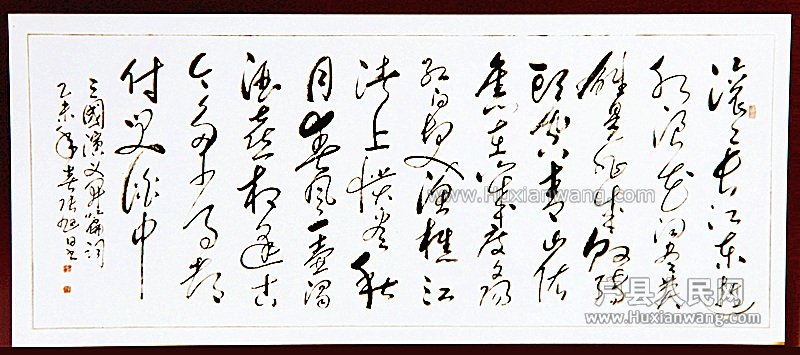 滚〻长江东逝
水浪花淘尽英
雄是非成败转
头空青山依
旧在几度夕阳
红白发渔樵江
渚上惯看秋
月春风一壶浊
酒喜相逢古
今多少事都
付笑谈中
三國演义开篇词
乙未年春张旭日书
www.Huxianwang.com
户县人民网
www.Huxianwang.com